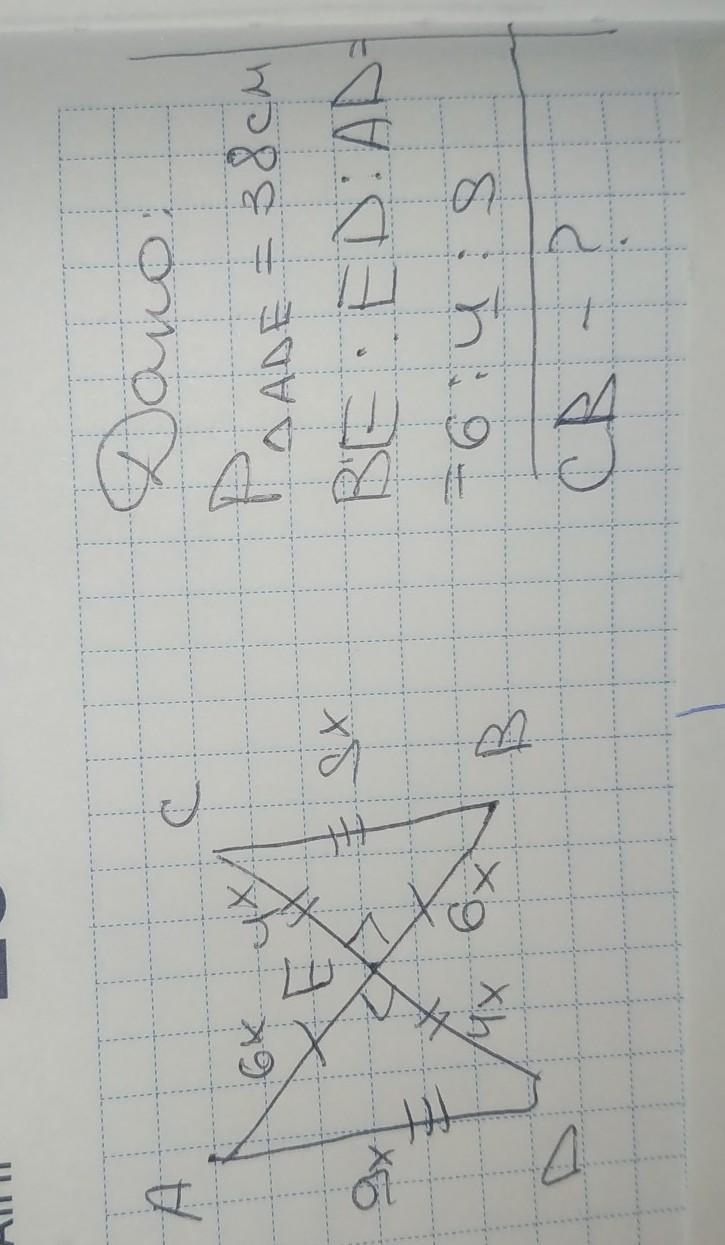 Дано:
P ΔADE = 38 см
BE : ED : AD =
= 6 : 4 : 9
CB - ?
A
C
6x
4x
E
9x
9x
4x
6x
D
B